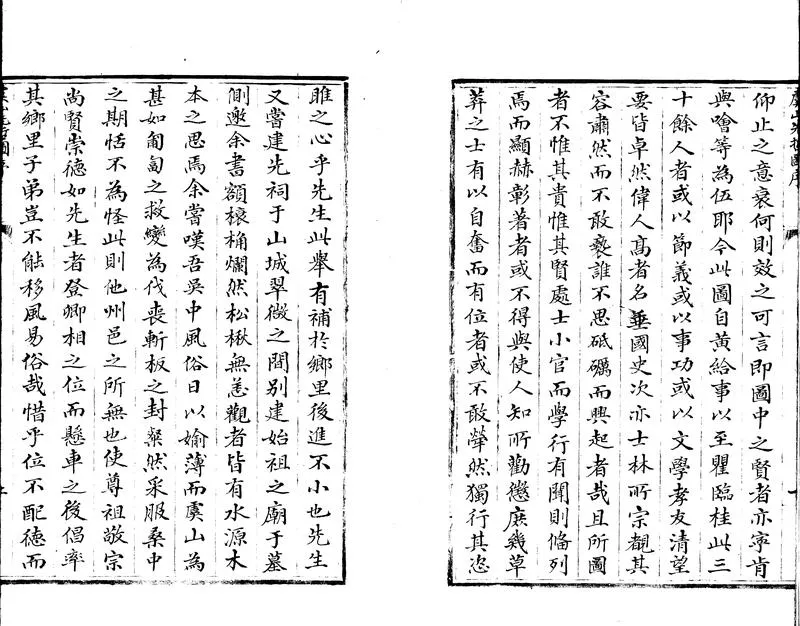 仰止之意哀何則效之可言即圖中之賢者亦寧肯
與噲等為伍耶今此圖自黃給事以至瞿臨桂此三
十餘人者或以節義或以事功或以文學孝友清望
要皆卓然偉人髙者名垂國史次亦士林所宗覩其
容肅然而不敢褻誰不思砥礪而興起者哉且所圖
者不惟其貴惟其賢處士小官而學行有聞則俻列
焉而顯赫彰著者或不得與使人知所勸懲庶幾草
莽之士有以自奮而有位者或不敢犖然獨行其恣
睢之心乎先生此舉有補於鄉里後進不小也先生
又嘗建先祠于山城翠微之間别建始祖之廟于墓
側邀余書額榱桷爛然松楸無恙觀者皆有水源木
本之思焉余嘗嘆吾吳中風俗日以媮薄而虞山為
甚如匍匐之救變為伐喪斬板之封粲然采服桑中
之期恬不為怪此則他州邑之所無也使尊祖敬宗
尚賢崇德如先生者登卿相之位而懸車之後倡率
其鄉里子弟豈不能移風易俗哉惜乎位不配德而